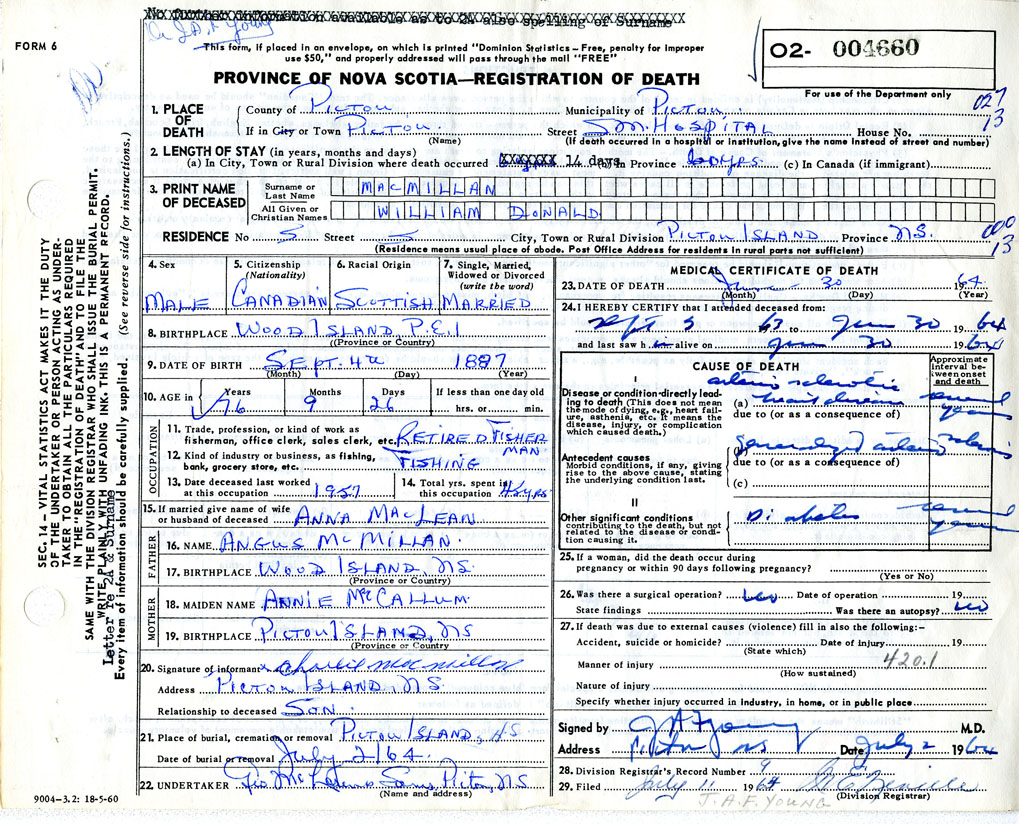 No further information available as to 2A also spelling of Surname
Dr J.A.F. Young
FORM 6
This form, if placed in an envelope, on which is printed "Dominion Statistics – Free, penalty for improper
use $50," and properly addressed will pass through the mail "FREE"
PROVINCE OF NOVA SCOTIA—REGISTRATION OF DEATH
O2- 004660
For use of the Department only
027
13
1. PLACE OF DEATH
County of Pictou Municipality of Pictou
If in City or Town Pictou Street S.M. Hospital House No.
(Name) (If death occurred in a hospital or institution, give the name instead of street and number)
2. LENGTH OF STAY (in years, months and days)
(a) In City, Town or Rural Division where death occurred 14 days (b) In Province 60 yrs. (c) In Canada (if immigrant)
3. PRINT NAME OF DECEASED
Surname or Last Name MACMILLAN
All Given or Christian Names WILLIAM DONALD
RESIDENCE No S Street S City, Town or Rural Division PICTOU ISLAND Province N.S.
000
13
(Residence means usual place of abode. Post Office Address for residents in rural parts not sufficient)
4. Sex MALE
5. Citizenship (Nationality) CANADIAN
6. Racial Origin SCOTTISH
7. Single, Married, Widowed or Divorced (write the word) MARRIED
8. BIRTHPLACE WOOD ISLAND P.E.I
(Province or Country)
9. DATE OF BIRTH SEPT. 4th 1887
(Month) (Day) (Year)
10. AGE in Years 76 Months 9 Days 26 If less than one day old hrs. or min.
OCCUPATION
11. Trade, profession, or kind of work as fisherman, office clerk, sales clerk, etc. RETIRED FISHERMAN.
12. Kind of industry or business, as fishing, bank, grocery store, etc. FISHING
13. Date deceased last worked at this occupation 1957
14. Total yrs. spent in this occupation 45 yrs
15. If married give name of wife or husband of deceased ANNA MACLEAN
FATHER
16. NAME ANGUS MCMILLAN.
17. BIRTHPLACE WOOD ISLAND, N.S.
(Province or Country)
MOTHER
18. MAIDEN NAME ANNIE MCCALLUM.
19. BIRTHPLACE PICTOU ISLAND, NS
(Province or Country
20. Signature of informant x Charlie MacMillan
Address PICTOU ISLAND, N.S.
Relationship to deceased SON.
21. Place of burial, cremation or removal PICTOU ISLAND, N.S
Date of burial or removal July 2/64.
22. UNDERTAKER Sons, Pictou, N.S
(Name and address)
9004–3.2: 18-5-60
MEDICAL CERTIFICATE OF DEATH
23. DATE OF DEATH June 30 1964
(Month) (Day) (Year)
24. I HEREBY CERTIFY that I attended deceased from:
Sept 5 63 to June 30 1964
and last saw him alive on June 30 1964
CAUSE OF DEATH
Approximate interval between onset and death
I
Disease or condition directly leading to death (This does not mean the mode of dying, e.g., heart failure, asthenia, etc. It means the disease, injury, or complication which caused death.)
(a) arterio sclerotic heart disease several years
due to (or as a consequence of)
Antecedent causes
Morbid conditions, if any, giving rise to the above cause, stating the underlying condition last.
(b) generalized arterio sclerosis
due to (or as a consequence of)
(c)
II
Other significant conditions contributing to the death, but not related to the disease or condition causing it.
Diabetes several years
25. If a woman, did the death occur during pregnancy or within 90 days following pregnancy?
(Yes or No)
26. Was there a surgical operation? no Date of operation 19
State findings Was there an autopsy? no
27. If death was due to external causes (violence) fill in also the following:–
Accident, suicide or homicide? Date of injury 19
(State which)
Manner of injury 420.1
(How sustained)
Nature of injury
Specify whether injury occurred in industry, in home, or in public place
Signed by J A F Young M.D.
Address Pictou NS Date July 2 1964
28. Division Registrar's Record Number 9
29. Filed July 11 1964
(Division Registrar)
J.A.F. YOUNG
SEC. 14 – VITAL STATISTICS ACT MAKES IT THE DUTY
OF THE UNDERTAKER OR PERSON ACTING AS UNDER-
TAKER TO OBTAIN ALL THE PARTICULARS REQUIRED
IN THE "REGISTRATION OF DEATH" AND TO FILE THE
SAME WITH THE DIVISION REGISTRAR WHO SHALL ISSUE THE BURIAL PERMIT.
WRITE PLAINLY WITH UNFADING INK. THIS IS A PERMANENT RECORD.
Letter re 2A & Surname
Every item of information should be carefully supplied. (See reverse side for instructions.)